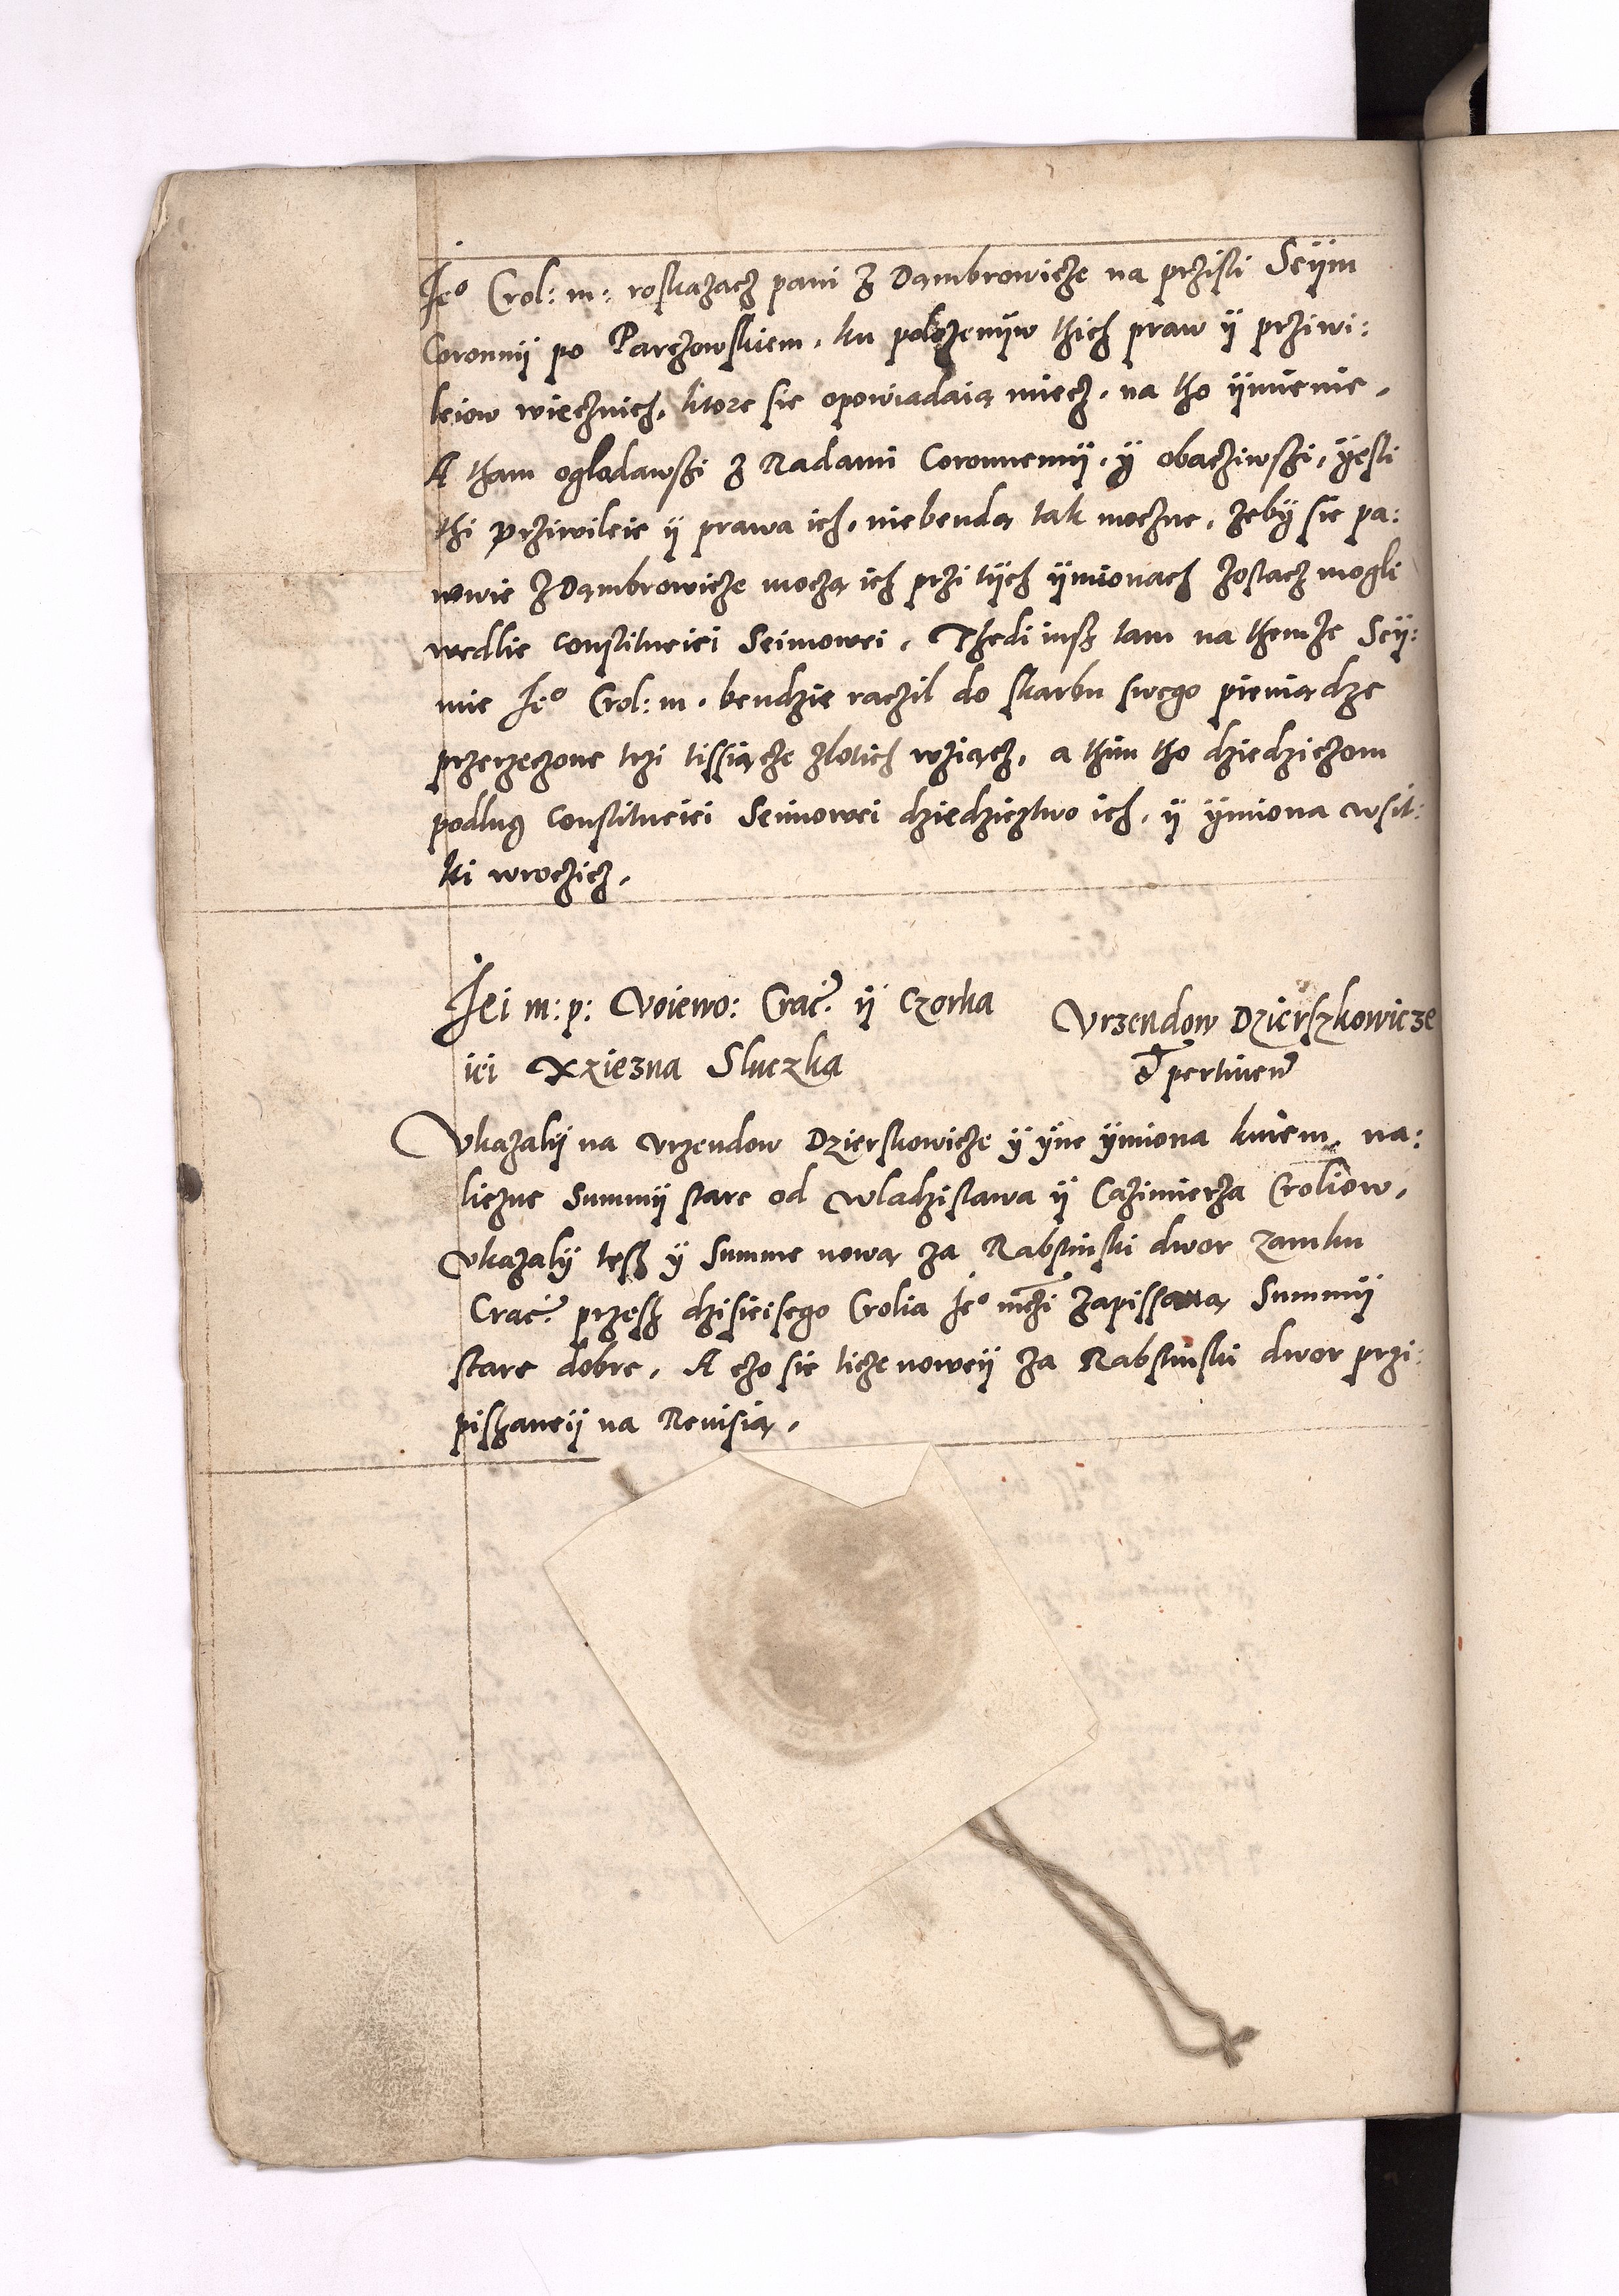 Je° Crol: m: roskazacz pani z Dambrowicze na przisli Seÿm
Coronnÿ po Parczowskiem, ku polozenÿw thich praw ÿ przÿwi:
leiow wiecznich, ktore sie opowiadaią miecz, na tho ÿmienie,
A tham oglodawszi z Radami Coronnemÿ, ÿ obacziwszi, ÿesli
thi prziwileie ÿ prawa ich, niebendą tak moczne, zebÿ sie pa:
nowie z Dambrowicze moczą ich przi tÿch ÿmionach zostacz mogli
wedlie Constitucici Seimowei, Thedi iusz tam na themze Seÿ:
mie Je° Crol: m, bendzie raczil do skarbu swego pieniądze
przerzeczone trzi tissiącze zlotich wziącz, a thim tho dziedziczom
podlug Constitucici Seimowei dziedzicztwo ich, ÿ ÿmiona wsit:
ki wroczicz,
Jei m: p: Voiewo: Crac̃. ÿ Czorka
iei Xziezna Sluczka
Vrzendow Dzierszkowicze
pertineñ
Vkazalÿ na Vrzendow Dzierskowicze ÿ ÿne ÿmiona kniem, na:
liezne Summÿ stare od Wladzislawa ÿ Cazimierza Croliow,
Vkazalÿ tesz ÿ Summe nową za Rabstinski dwor Zamku
Crac̃. przesz dzisieisego Crolia Je° mczi zapissaną, Summÿ
stare dobre, A czo sie ticze noweÿ za Rabstinski dwor przi:
piszaneÿ na Reuisią,